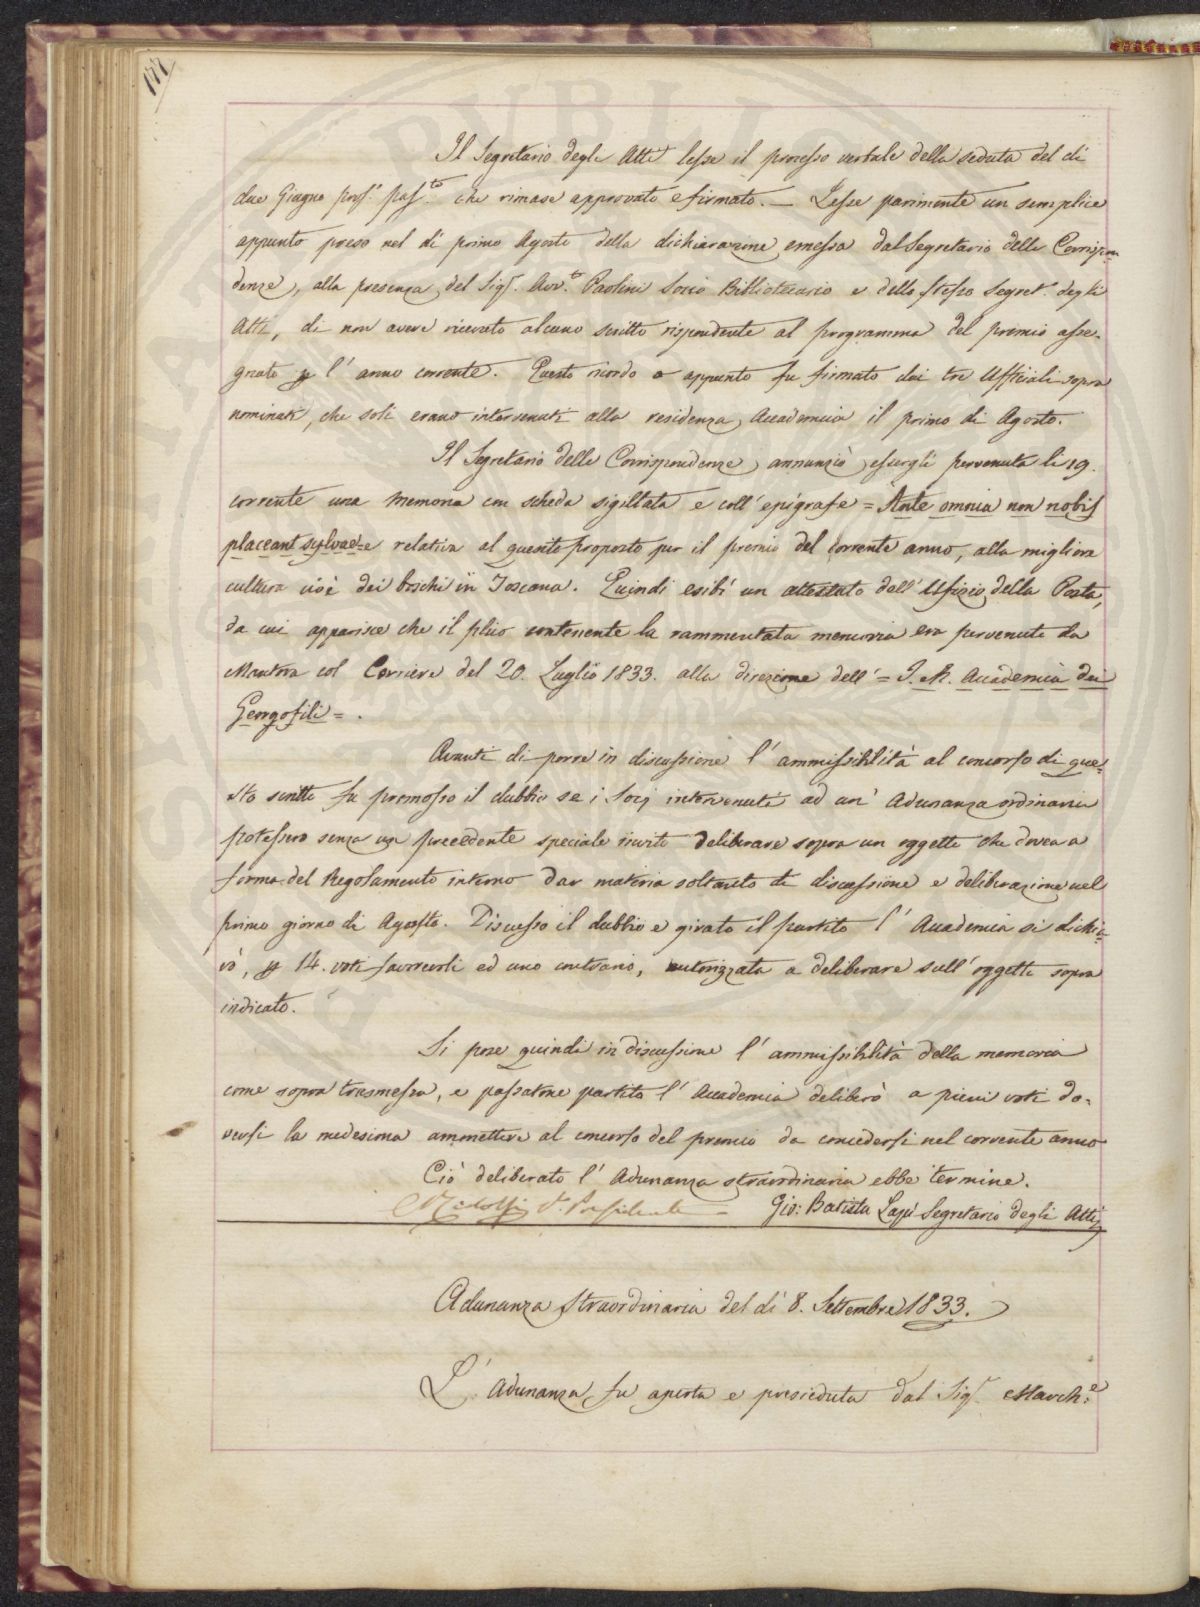 177
Il Segretario degli Atti lesse il processo verbale della seduta del dì
due Giugno pross.º pass.to che rimase approvato e firmato. — Lesse parimente un semplice
appunto preso nel dì primo Agosto della dichiarazione emessa dal Segretario delle Corrispon
denze, alla presenza del Sig.r Avv.to Paolini Socio Bibliotecario e dello stesso Segret.º degli
Atti, di non avere ricevuto alcuno scritto rispondente al programma del premio asse-
gnato p l' anno corrente. Questo ricordo o appunto fu firmato dai tre Uffiziali sopra
nominati, che soli erano intervenuti alla residenza Accademica il primo di Agosto.
Il Segretario delle Corrispondenze annunziò essergli pervenuta li 19.
corrente una memoria con scheda sigillata e coll' epigrafe = Ante omnia non nobis
placeant sylvae = e relativa al quesito proposto per il premio del corrente anno, alla migliore
cultura cioè dei boschi in Toscana. Quindi esibì un attestato dell' Ufizio della Posta,
da cui apparisce che il plico contenente la rammentata memoria era pervenuto da
Mantova col Corriere del 20. Luglio 1833. alla direzione dell' = I. e R. Accademia dei
Georgofili = .
Avanti di porre in discussione l' ammissibilità al concorso di que-
sto scritto fu promosso il dubbio se i Socj intervenuti ad un' Adunanza ordinaria
potessero senza un precedente speciale invito deliberare sopra un oggetto che dovea a
forma del Regolamento interno dar materia soltanto di discussione e deliberazione nel
primo giorno di Agosto. Discusso il dubbio e girato il partito l' Accademia si dichia-
rò, p 14. voti favorevoli ed uno contrario, autorizzata a deliberare sull' oggetto sopra
indicato.
Si pose quindi in discussione l' ammissibilità della memoria
come sopra trasmessa, e passatone partito l' Accademia deliberò a pieni voti do-
versi la medesima ammettere al concorso del premio da concedersi nel corrente anno
Ciò deliberato l' Adunanza straordinaria ebbe termine.
C Ridolfi V. Presidente — Gio: Batista Lapi Segretario degli Atti
Adunanza straordinaria del dì 8. Settembre 1833.
L' Adunanza fu aperta e presieduta dal Sig.r March.e